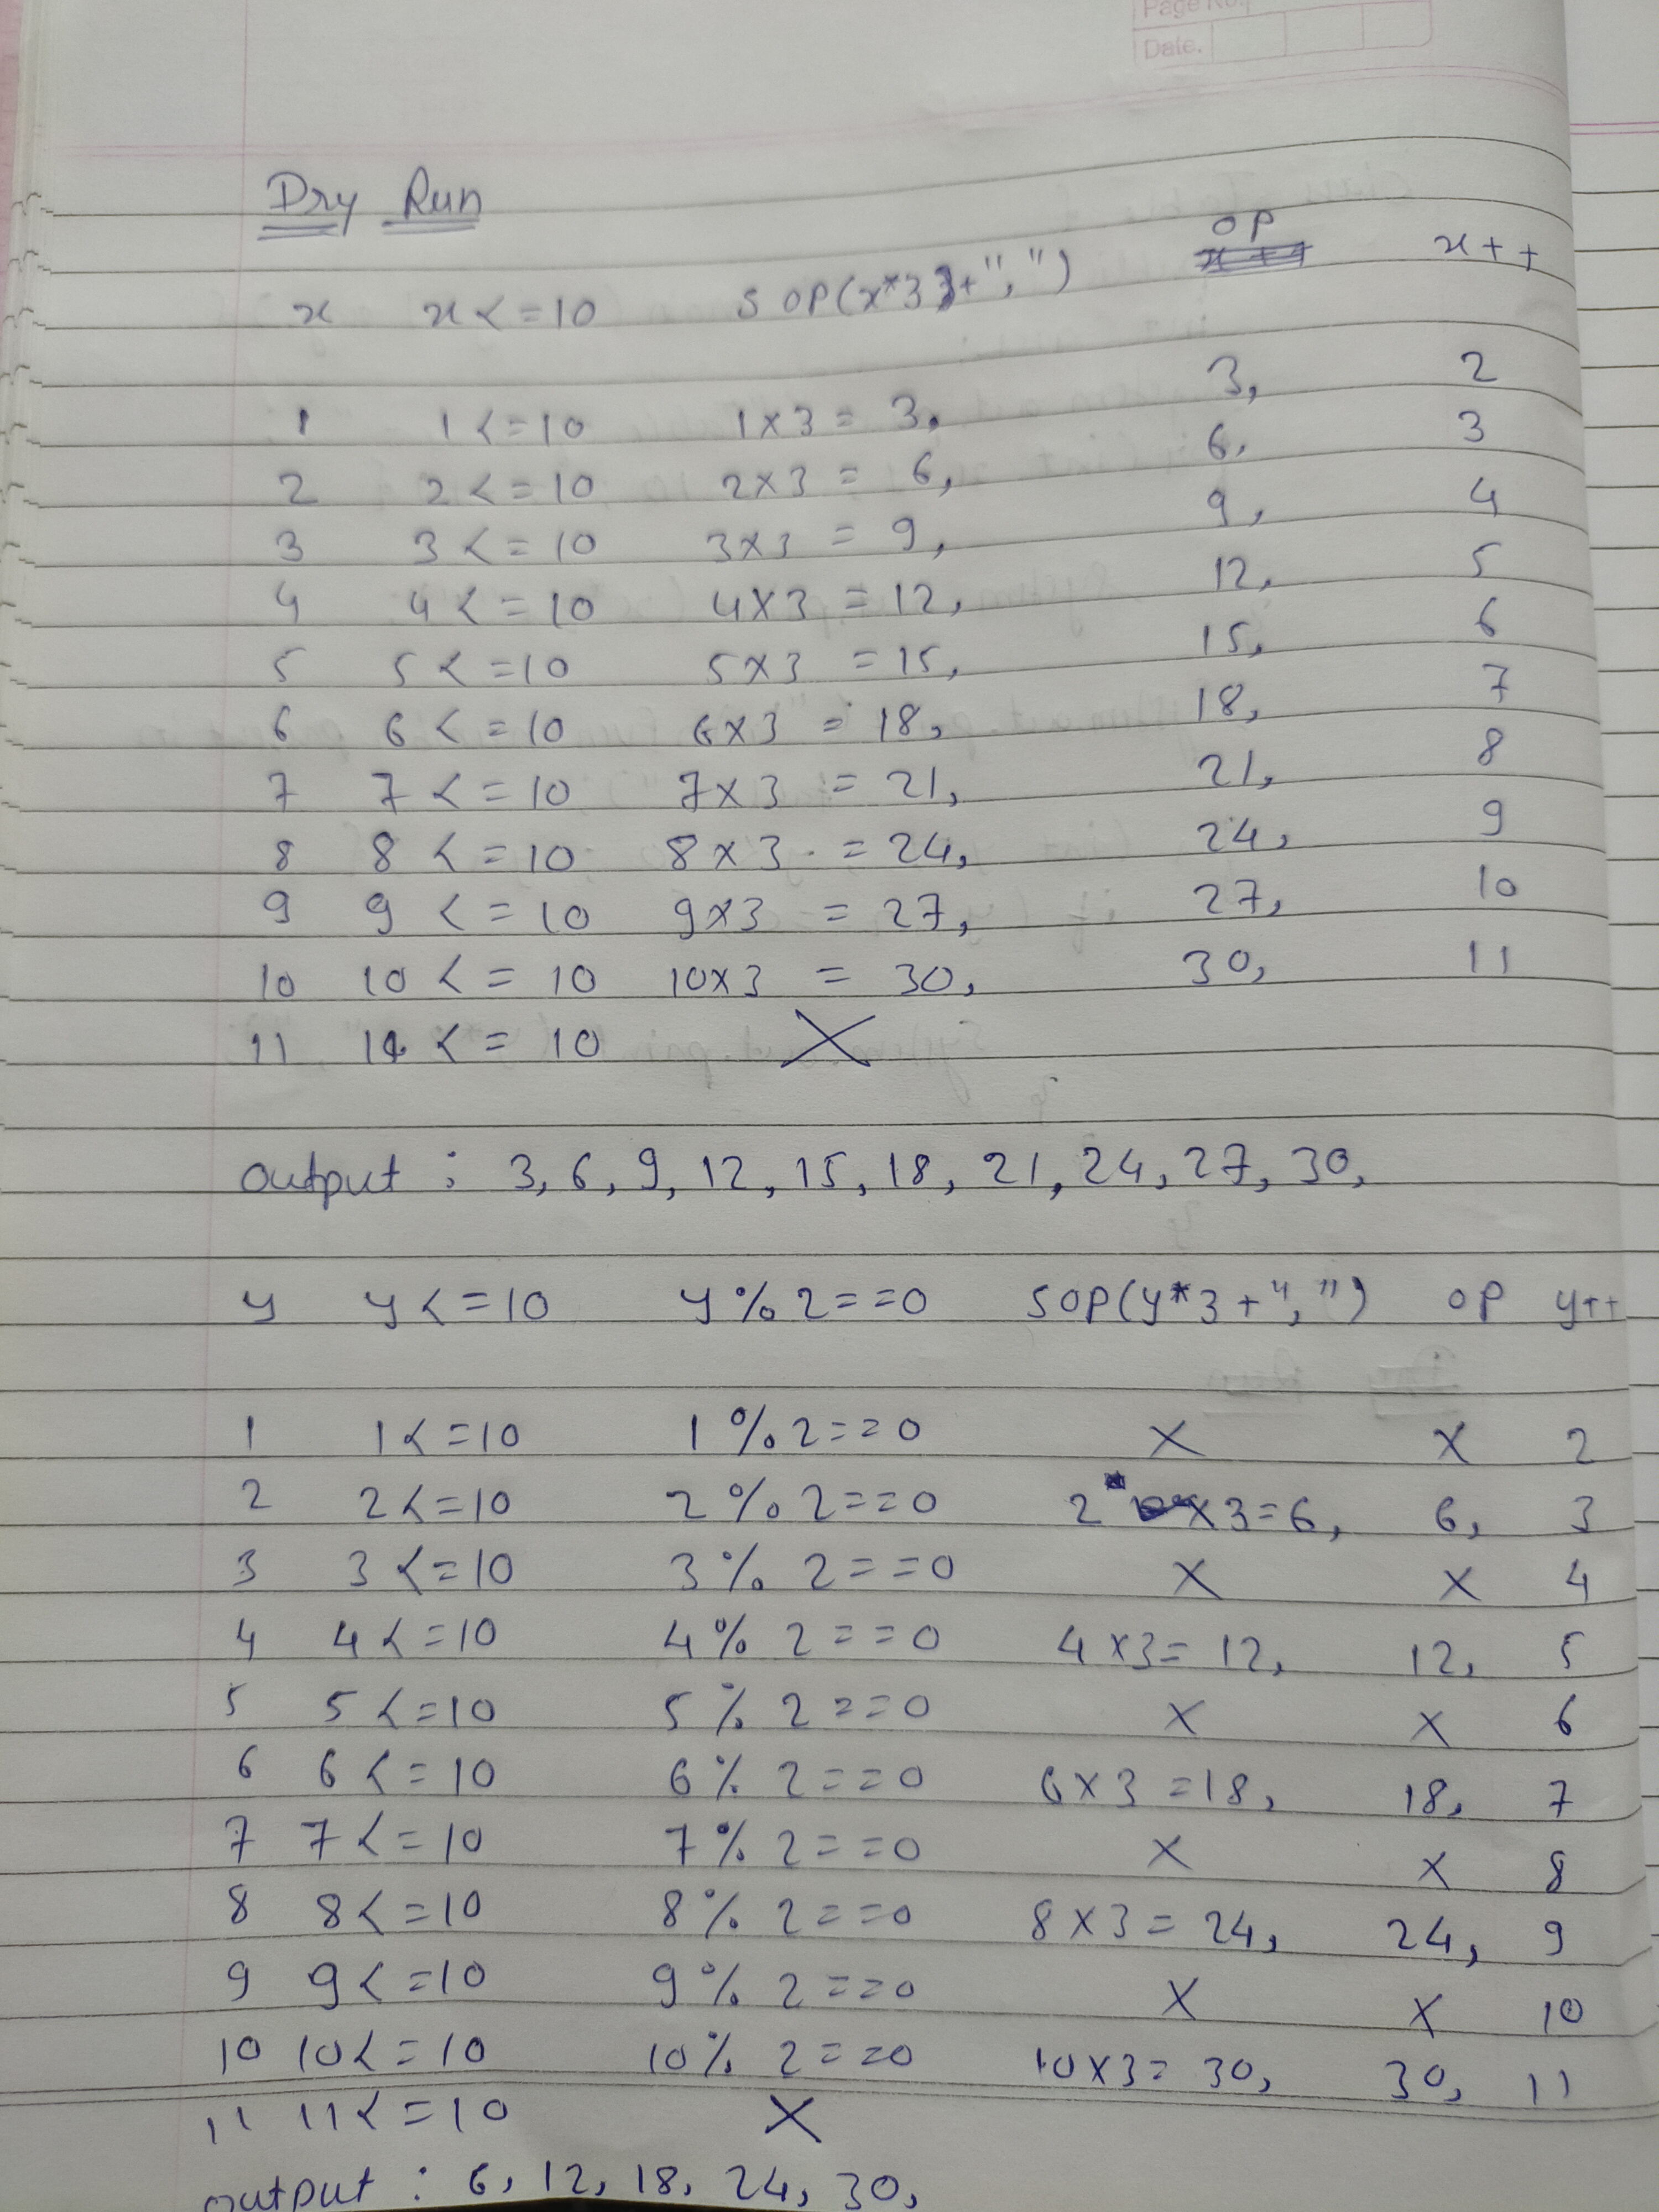 Page No.
Date.
Dry Run
x x<=10 SOP(x*3+",") OP x++
1 1<=10 1x3 = 3, 3, 2
2 2<=10 2x3 = 6, 6, 3
3 3<=10 3x3 = 9, 9, 4
4 4<=10 4x3 = 12, 12, 5
5 5<=10 5x3 = 15, 15, 6
6 6<=10 6x3 = 18, 18, 7
7 7<=10 7x3 = 21, 21, 8
8 8<=10 8x3 = 24, 24, 9
9 9<=10 9x3 = 27, 27, 10
10 10<=10 10x3 = 30, 30, 11
11 11<=10 X
output : 3, 6, 9, 12, 15, 18, 21, 24, 27, 30,
y y<=10 y%2==0 SOP(y*3+",") OP y++
1 1<=10 1%2==0 X X 2
2 2<=10 2%2==0 2x3=6, 6, 3
3 3<=10 3%2==0 X X 4
4 4<=10 4%2==0 4x3=12, 12, 5
5 5<=10 5%2==0 X X 6
6 6<=10 6%2==0 6x3=18, 18, 7
7 7<=10 7%2==0 X X 8
8 8<=10 8%2==0 8x3=24, 24, 9
9 9<=10 9%2==0 X X 10
10 10<=10 10%2==0 10x3=30, 30, 11
11 11<=10 X
output : 6, 12, 18, 24, 30,